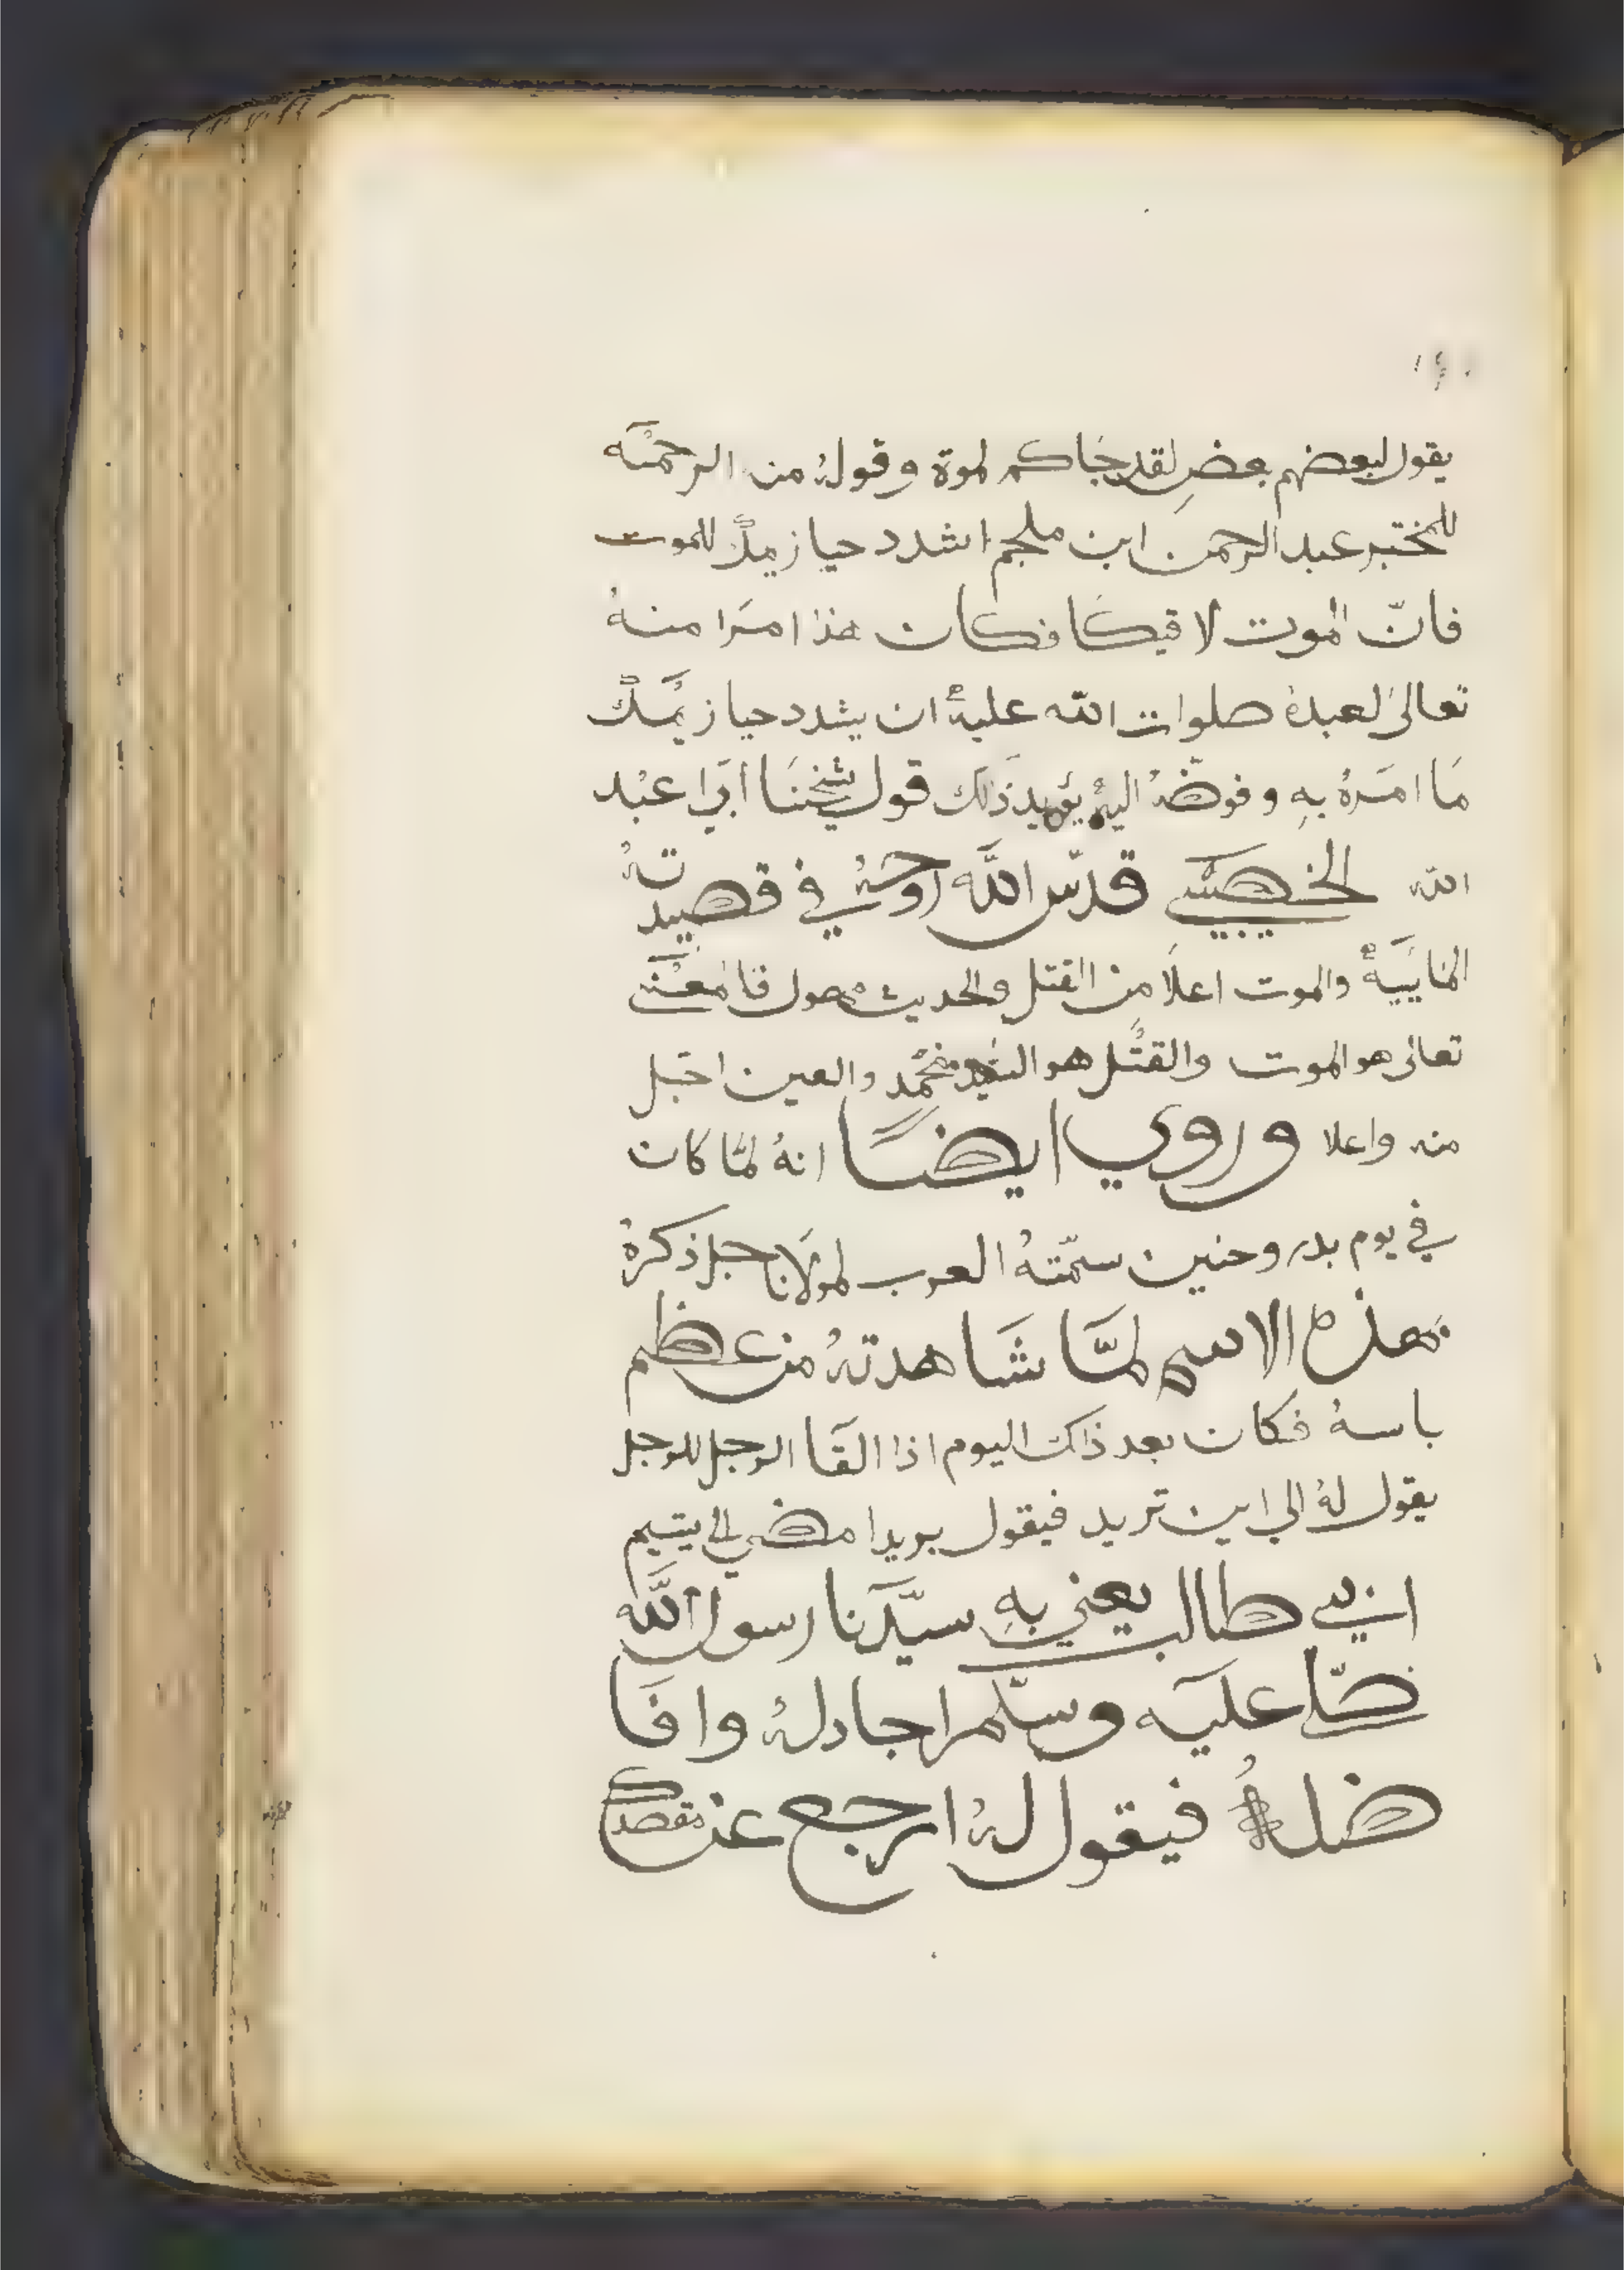 يقول لبعضهم بعضٍ لقد جَاكم لموة وقولهُ من الرحمَه
للمختبر عبد الرحمن ابن ملجم اشدد حيازيمكَ للموت
فانّ الموت لاقيكَا فكان هذا امرَا منهُ
تعالى لعبدهُ صلوات الله عليهٔ ان يشدد حيازيمَكَ
مَا امَرهُ بهِ وفوضّهُ اليهُ يؤيد ذَلك قول شيخنَا ابَي عبْد
الله الخصيبَي قدّس اللَّه روحهُ في قصيدتهُ
والموت اعلَا من القتل والحديث
تعالى هو الموت والقتُل هو السَيد محَمَّد والعين اجَل
منه واعلا وروي ايضًا انهُ لمَّا كان
في يوم بدر وحنين سمّتهُ العرب لمولَانا جل ذكرهُ
بهذه الاسم لمَّا شَاهدتهُ من عظم
باسهُ فكان بعد ذَاك اليوم اذا القَا الرجل للرجل
يقول لهُ الي اين تريد فيقول يريد امضي الي يتيم
ابي طالب يعني بهِ سيّدَنا رسول اللَّه
صَلّا عليَه وسلّم اجادلهُ وافَا
ضلهُ فيقول لهُ ارجع عن مقصدك